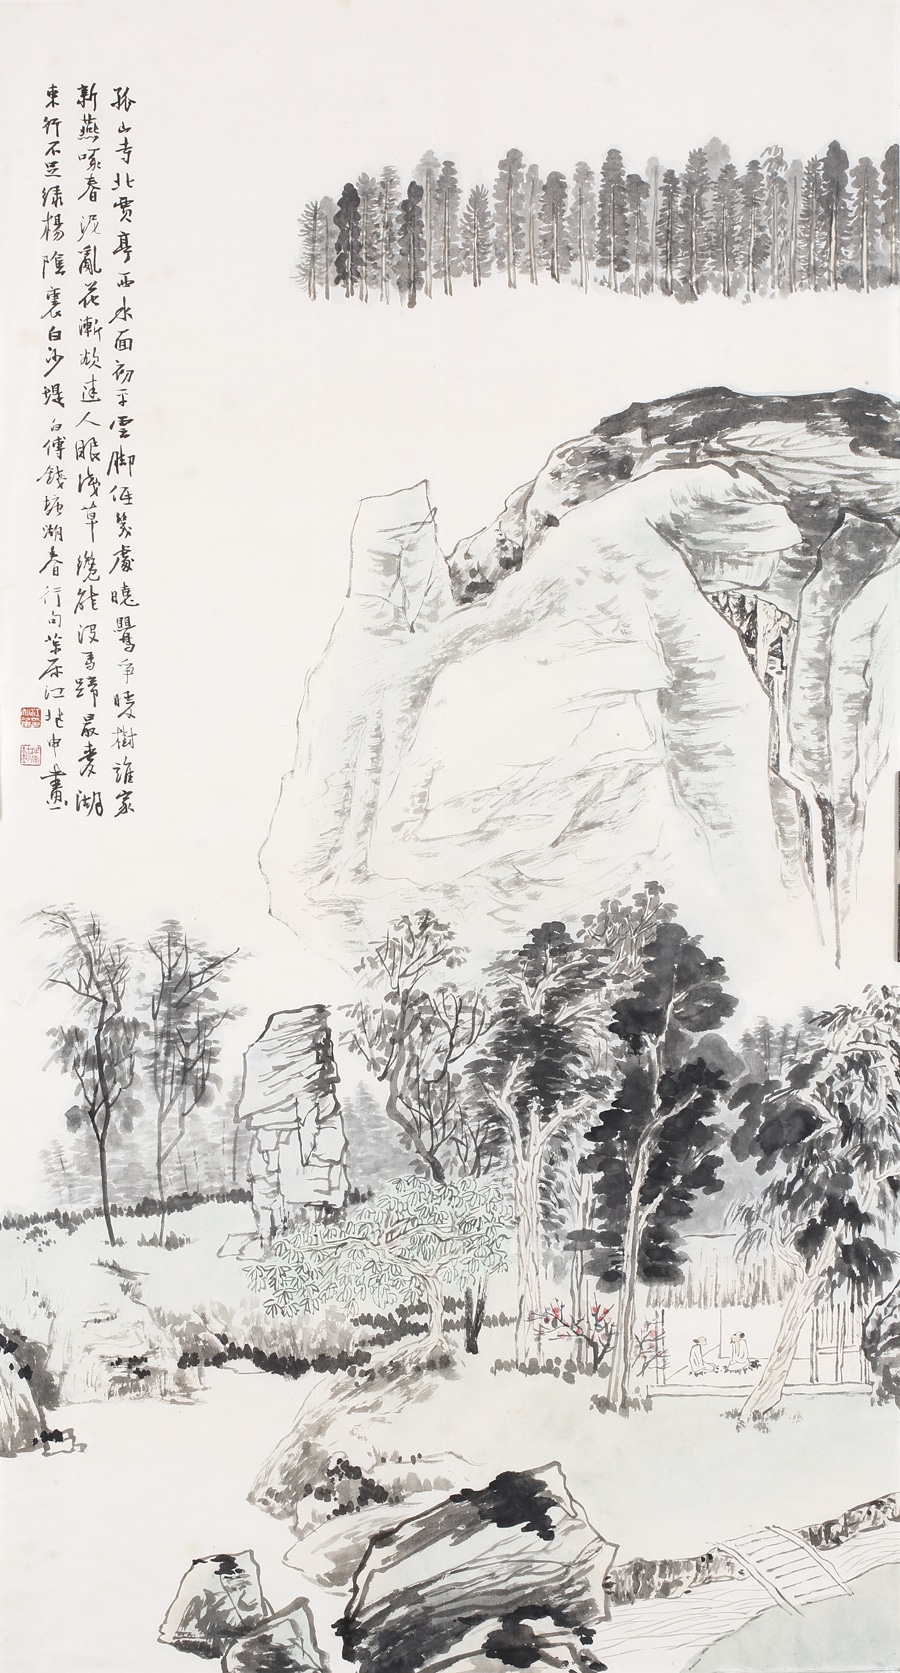 孤山寺北賈亭西水面初平雲脚低幾處曉鶯爭暖樹誰家
新燕啄春泥亂花漸欲迷人眼淺草纔能没馬蹄最愛湖
東行不足绿楊陰裏白沙堤白傅錢塘湖春行句茮原江兆申畫